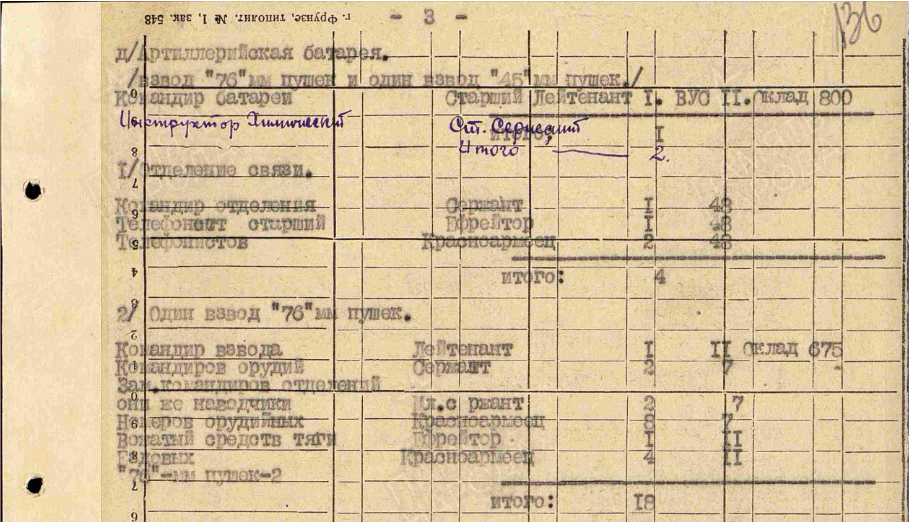 г. Фрунзе, типолит. № 1, зак. 548
- 3 -
136
д/Артиллерийская батарея.
/взвод "76"мм пушек и один взвод "45"мм пушек./
Командир батареи Старший Лейтенант I. ВУС II. Оклад 800
Инструктор Химический Ст. Сержант
итого: I
Итого 2.
I/Отделение связи.
Командир отделения Сержант I 48
Телефонист старший Ефрейтор I 48
Телефонистов Красноармеец 2 48
итого: 4
2/ Один взвод "76"мм пушек.
Командир взвода Лейтенант I II Оклад 675
Командиров орудий Сержант 2 7
Зам.командиров отделений
они же наводчики Мл.с ржант 2 7
Номеров орудийных Красноармеец 8 7
Вожатый средств тяги Ефрейтор I II
Ездовых Красноармеец 4 II
"76"-мм пушек-2
итого: 18